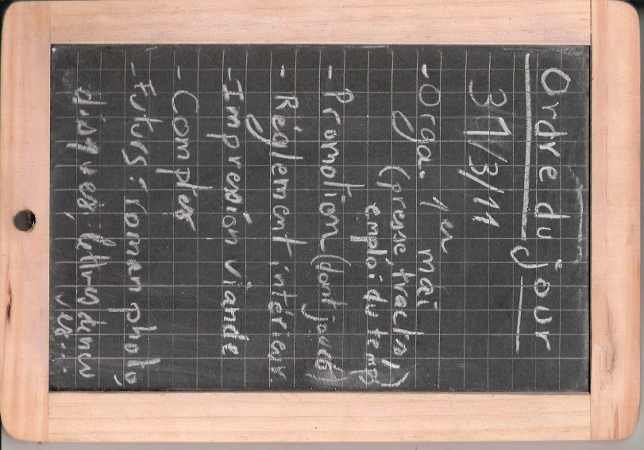 Ordre du jour
31/3/11
- Orga. 1er mai
(presse, tracts,
emploi du temps)
- Promotion (dont jouets)
- Réglement intérieur
- Impression viande
- Comptes
- Futurs: roman photo,